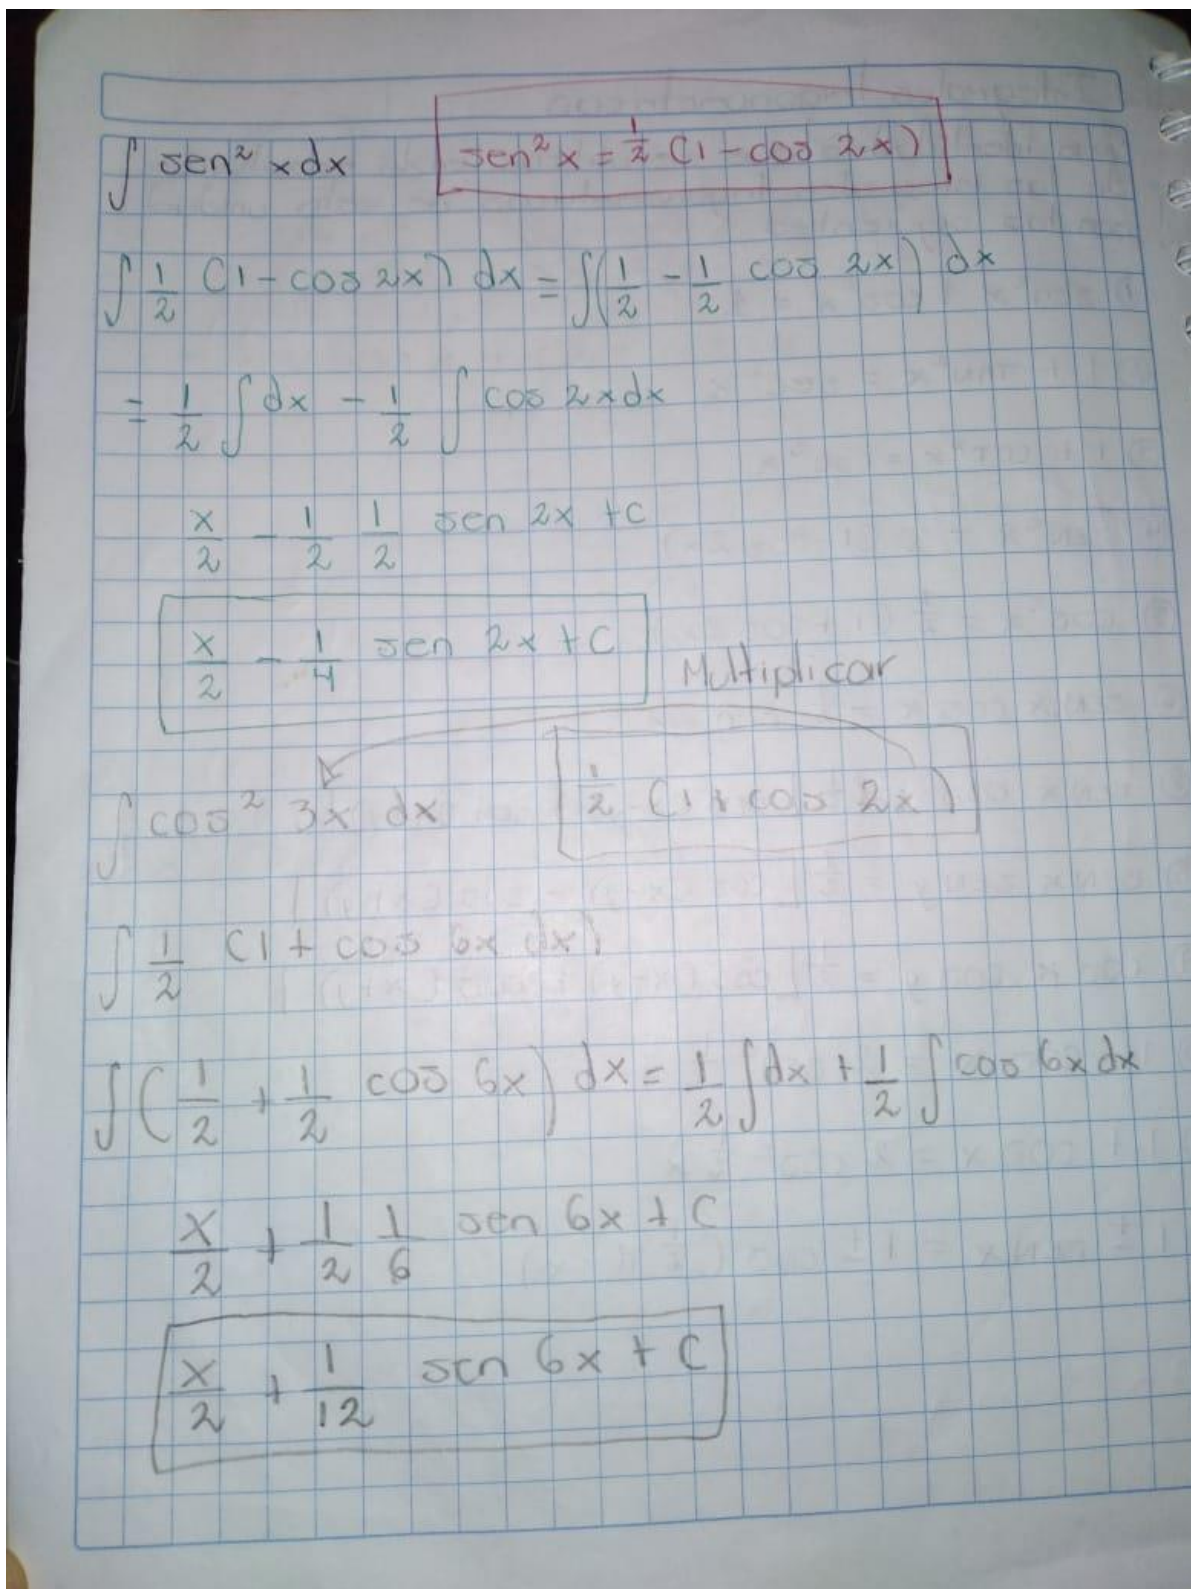 ∫ sen² x dx    sen² x = 1/2 (1 - cos 2x)
∫ 1/2 (1 - cos 2x) dx = ∫(1/2 - 1/2 cos 2x) dx
= 1/2 ∫ dx - 1/2 ∫ cos 2x dx
x/2 - 1/2 1/2 sen 2x + C
x/2 - 1/4 sen 2x + C
Multiplicar
∫ cos² 3x dx    1/2 (1 + cos 2x)
∫ 1/2 (1 + cos 6x dx)
∫ (1/2 + 1/2 cos 6x) dx = 1/2 ∫ dx + 1/2 ∫ cos 6x dx
x/2 + 1/2 1/6 sen 6x + C
x/2 + 1/12 sen 6x + C